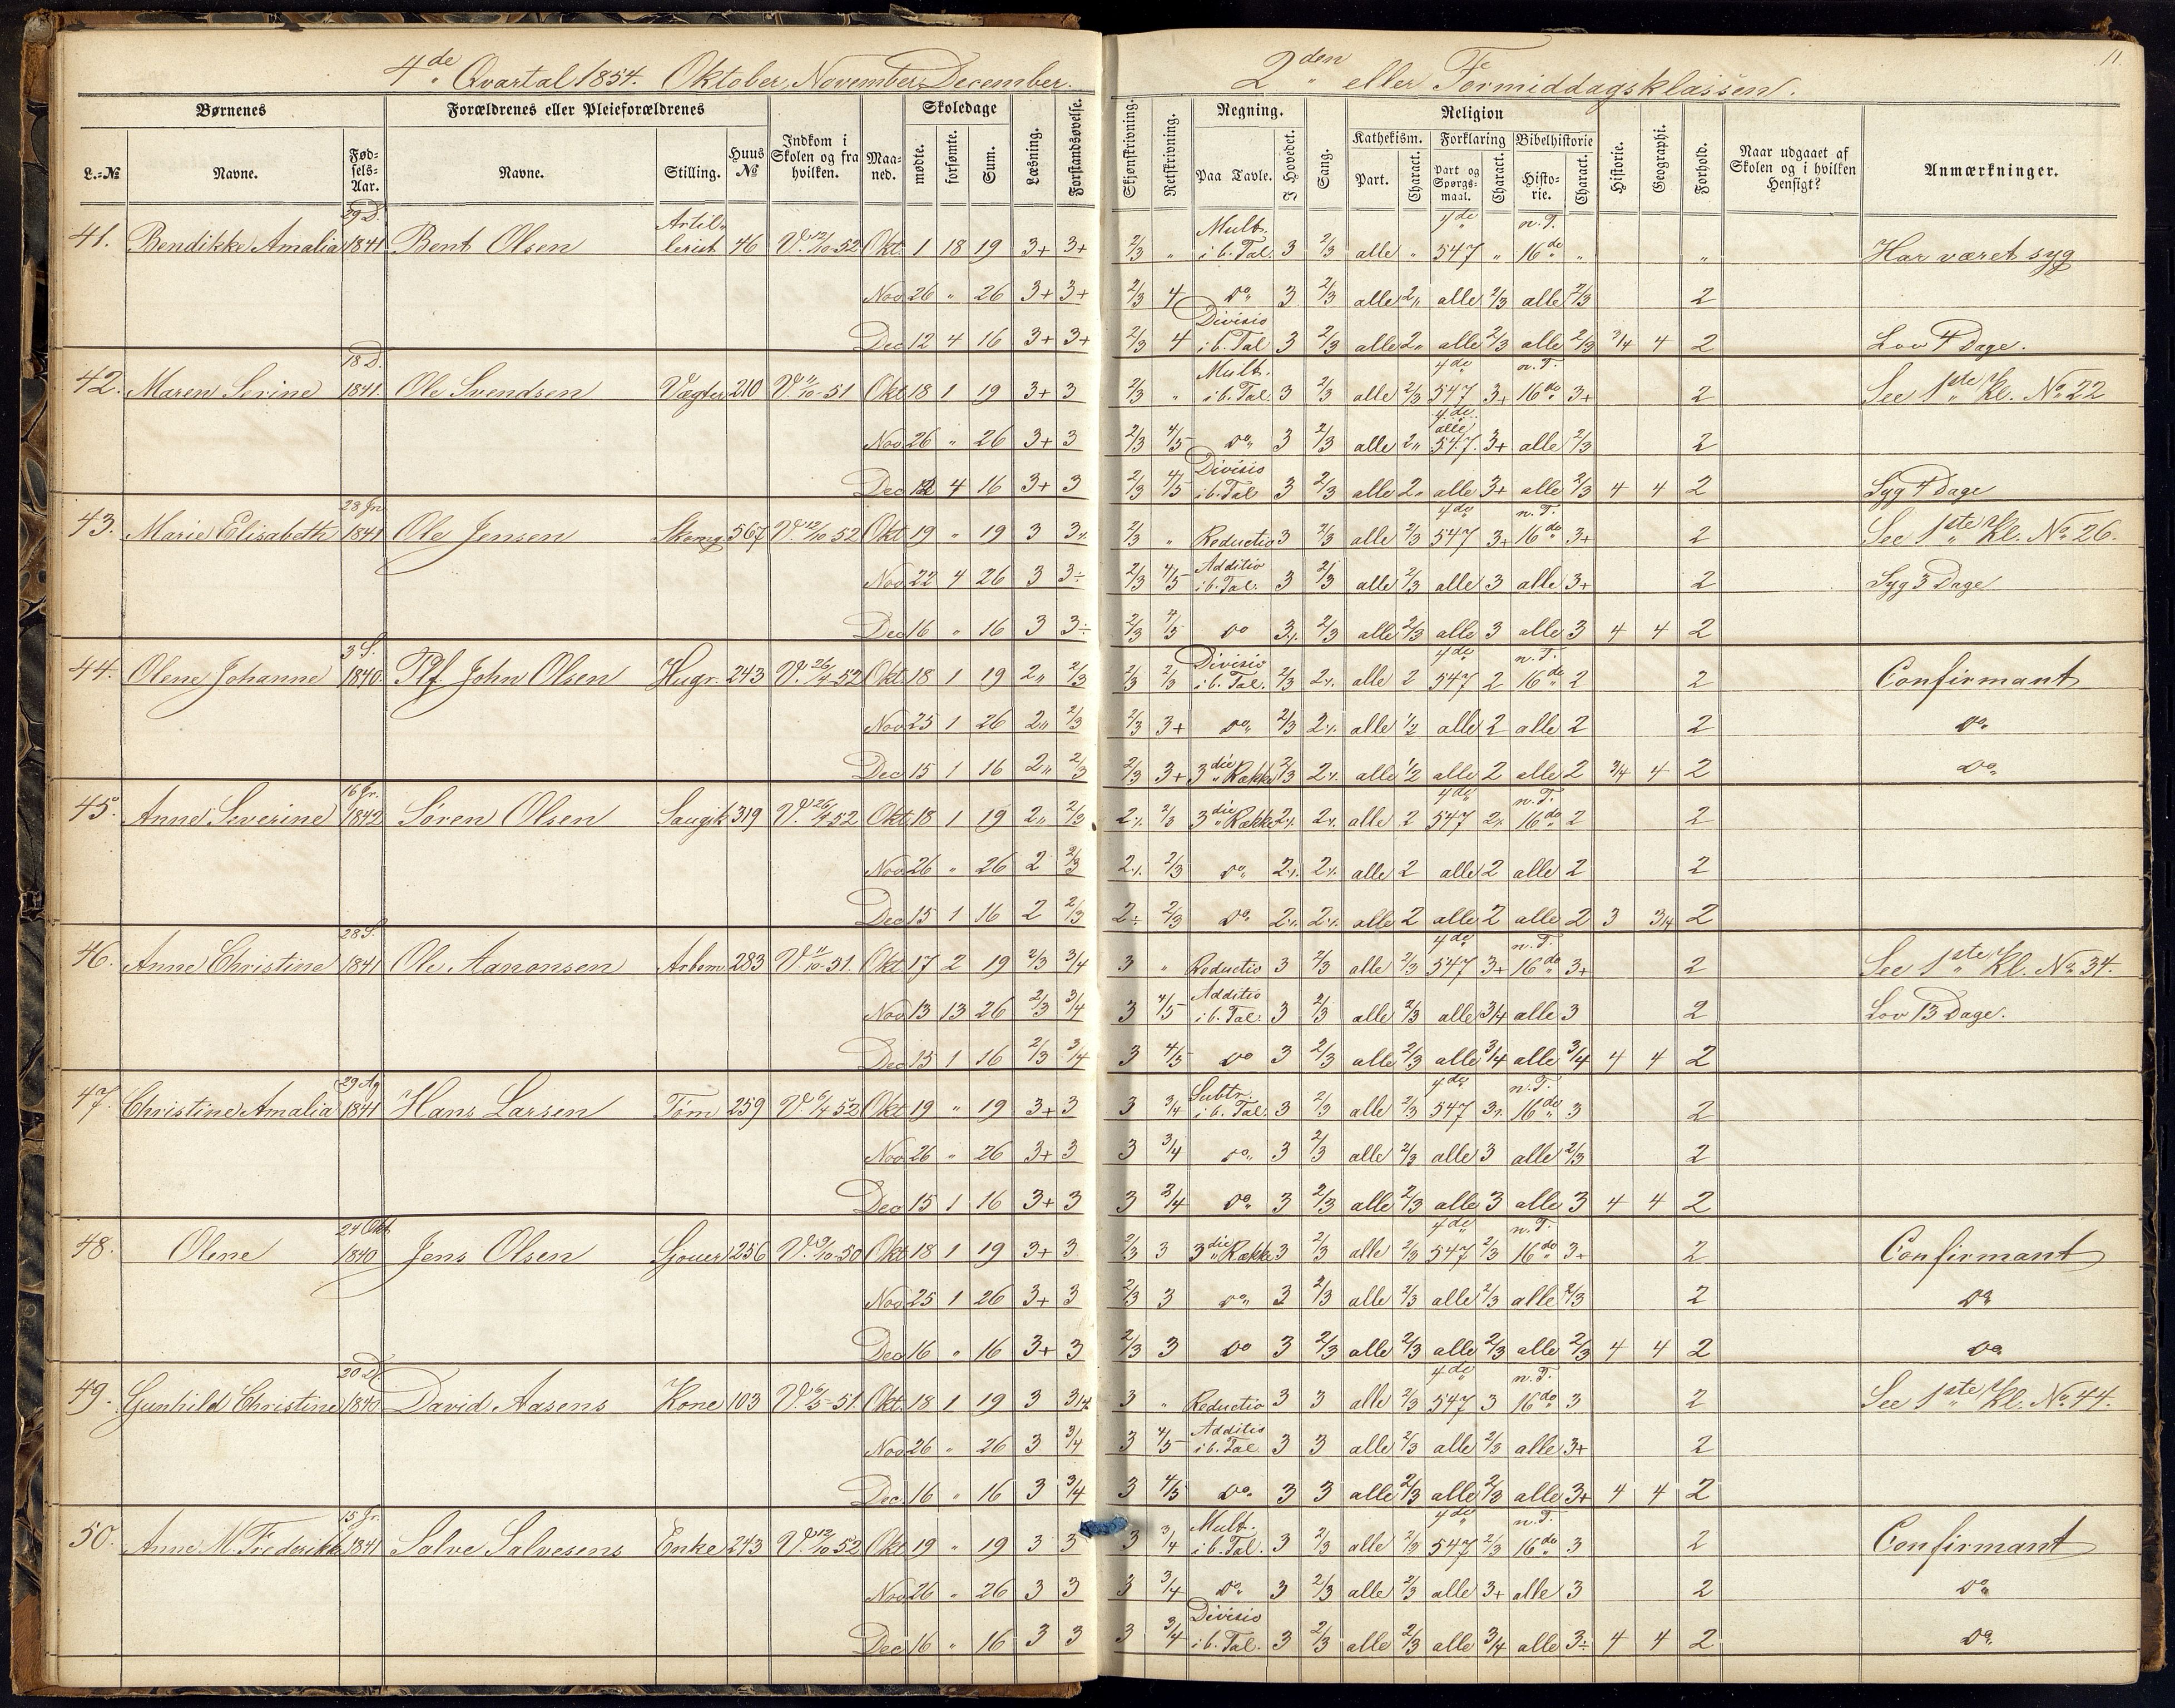 4de Qvartal 1854. Oktober, November, December.
2den eller Formiddagsklassen.
11
Børnenes
Forældrenes eller Pleieforældrenes
Indkom i Skolen og fra hvilken.
Maaned.
Skoledage
Læsning.
Forstandsøvelse.
L.-No
Navne.
Fødsels-Aar.
Navne.
Stilling.
Huus No
mødte.
forsømte.
Sum.
Skjønskrivning.
Retskrivning.
Regning.
Paa Tavle.
I Hovedet.
Sang.
Religion
Kathekism.
Forklaring
Bibelhistorie
Part.
Charact.
Part og Spørgsmaal.
Charact.
Historie.
Charact.
Historie.
Geographi.
Forhold.
Naar udgaaet af Skolen og i hvilken Hensigt?
Anmærkninger.
41. Bendikke Amalia 29 D. 1841 Bent Olsen Artillerist 46 V. 12/10-52 Okt. 1 18 19 3+ 3+ 2/3 " Mult. i b. Tal. 3 2/3 alle " 4de 547 " n. T. 16de " " Har været syg
Nov 26 " 26 3+ 3+ 2/3 4 do 3 2/3 alle 2" alle 2/3 alle 2/3 2
Dec 12 4 16 3+ 3+ 2/3 4 Divisio i b. Tal 3 2/3 alle 2" alle 2/3 alle 2/3 3/4 4 2 Lov 4 Dage.
42. Maren Serine 18 D. 1841. Ole Svendsen Vægter 210 V. 11/10-51 Okt 18 1 19 3+ 3 2/3 " Mult. i b. Tal. 3 2/3 alle 2/3 4de 547 3+ n. T. 16de 3+ 2 See 1ste Kl. No 22
Nov 26 " 26 3+ 3 2/3 4/5 do 3 2/3 alle 2" 4de alle 547. 3+ alle 2/3 2
Dec 12 4 16 3+ 3 2/3 4/5 Divisio i b. Tal 3 2/3 alle 2" alle 3+ alle 2/3 4 4 2 Syg 4 Dage
43. Marie Elisabeth 28 Jn 1841 Ole Jensen 567 V. 12/10 52 Okt 19 " 19 3 3÷ 2/3 " Reductio 3 2/3 alle 2/3 4de 547 3+ n. T. 16de 3+ 2 See 1ste Kl. No 26.
Nov 22 4 26 3 3÷ 2/3 4/5 Additio i b. Tal. 3 2/3 alle 2/3 alle 3 alle 3+ 2 Syg 3 Dage
Dec 16 " 16 3 3÷ 2/3 4/5 do 3÷ 2/3 alle 2/3 alle 3 alle 3 4 4 2
44. Olene Johanne 3 S. 1840. Plf. John Olsen Hugr. 243 V. 26/4-52 Okt. 18 1 19 2" 2/3 2/3 2/3 Divisio i b. Tal. 2/3 2÷ alle 2 4de 547 2 n. T. 16de 2 2 Confirmant
Nov 25 1 26 2" 2/3 2/3 3+ do 2/3 2÷ alle 1/2 alle 2 alle 2 2 do
Dec 15 1 16 2" 2/3 2/3 3+ 3die Række 2/3 2÷ alle 1/2 alle 2 alle 2 3/4 4 2 do
45. Anne Severine 16 Jr. 1842 Søren Olsen 319 V. 26/4 52 Okt. 18 1 19 2" 2/3 2÷ 2/3 3die Række 2÷ 2÷ alle 2 4de 547 2÷ n. T. 16de 2 2
Nov 26 " 26 2 2/3 2÷ 2/3 do 2÷ 2÷ alle 2 alle 2 alle 2 2
Dec 15 1 16 2 2/3 2÷ 2/3 do 2÷ 2÷ alle 2 alle 2 alle 2 3 3/4 2
46. Anne Christine 28 S. 1841 Ole Aanonsen Arbem. 283 V. 11/10-51. Okt 17 2 19 2/3 3/4 3 " Reductio 3 2/3 alle 2/3 4de 547 3+ n. T. 16de 3+ 2 See 1ste Kl. No 34.
Nov 13 13 26 2/3 3/4 3 4/5 Additio i b. Tal. 3 2/3 alle 2/3 alle 3/4 alle 3 2 Lov 13 Dage.
Dec 15 1 16 2/3 3/4 3 4/5 do 3 2/3 alle 2/3 alle 3/4 alle 3/4 4 4 2
47. Christine Amalia 29 Ag 1841 Hans Larsen Tøm 259 V. 6/4 52 Okt 19 " 19 3+ 3 3 3/4 Subtr. i b. Tal. 3 2/3 alle 2/3 4de 547 3÷ n. T. 16de 3 2
Nov 26 " 26 3+ 3 3 3/4 do 3 2/3 alle 2/3 alle 3 alle 2/3 2
Dec 15 1 16 3+ 3 3 3/4 do 3 2/3 alle 2/3 alle 3 alle 3 4 4 2
48. Olene 24 Okt. 1840 Jens Olsen 256 V. 9/10-50 Okt 18 1 19 3+ 3 2/3 3 3die Række 3 2/3 alle 2/3 4de 547 2/3 n. T. 16de 3+ 2 Confirmant
Nov 25 1 26 3+ 3 2/3 3 do 3 2/3 alle 2/3 alle 2/3 alle 2/3 2 do
Dec 16 " 16 3+ 3 2/3 3 do 3 2/3 alle 2/3 alle 2/3 alle 2/3 4 4 2 do
49. Gunhild Christine 20 D. 1840 David Aasens Kone 103 V. 6/5-51. Okt. 18 1 19 3 3/4 3 " Reductio 3 3 alle 2/3 4de 547 3 n. T. 16de 3 2 See 1ste Kl. No 44.
Nov 26 " 26 3 3/4 3 4/5 Additio i b. Tal 3 3 alle 2/3 alle 2/3 alle 3+ 2
Dec. 16 " 16 3 3/4 3 4/5 do 3 3 alle 2/3 alle 2/3 alle 3+ 4 4 2
50. Anne M. Frederikke 15 Jr. 1841 Salve Salvesens Enke 243 V. 12/10 52 Okt 19 " 19 3 3 3 3/4 Mult. i b. Tal. 3 2/3 alle 2/3 4de 547 2/3 n. T. 16de 3 2 Confirmant
Nov 26 " 26 3 3 3 3/4 do 3 2/3 alle 2/3 alle 3+ alle 3 2 do
Dec 16 " 16 3 3 3 3/4 Divisio i b. Tal. 3 2/3 alle 2/3 alle 3/4 alle 3÷ 4 4 2 do